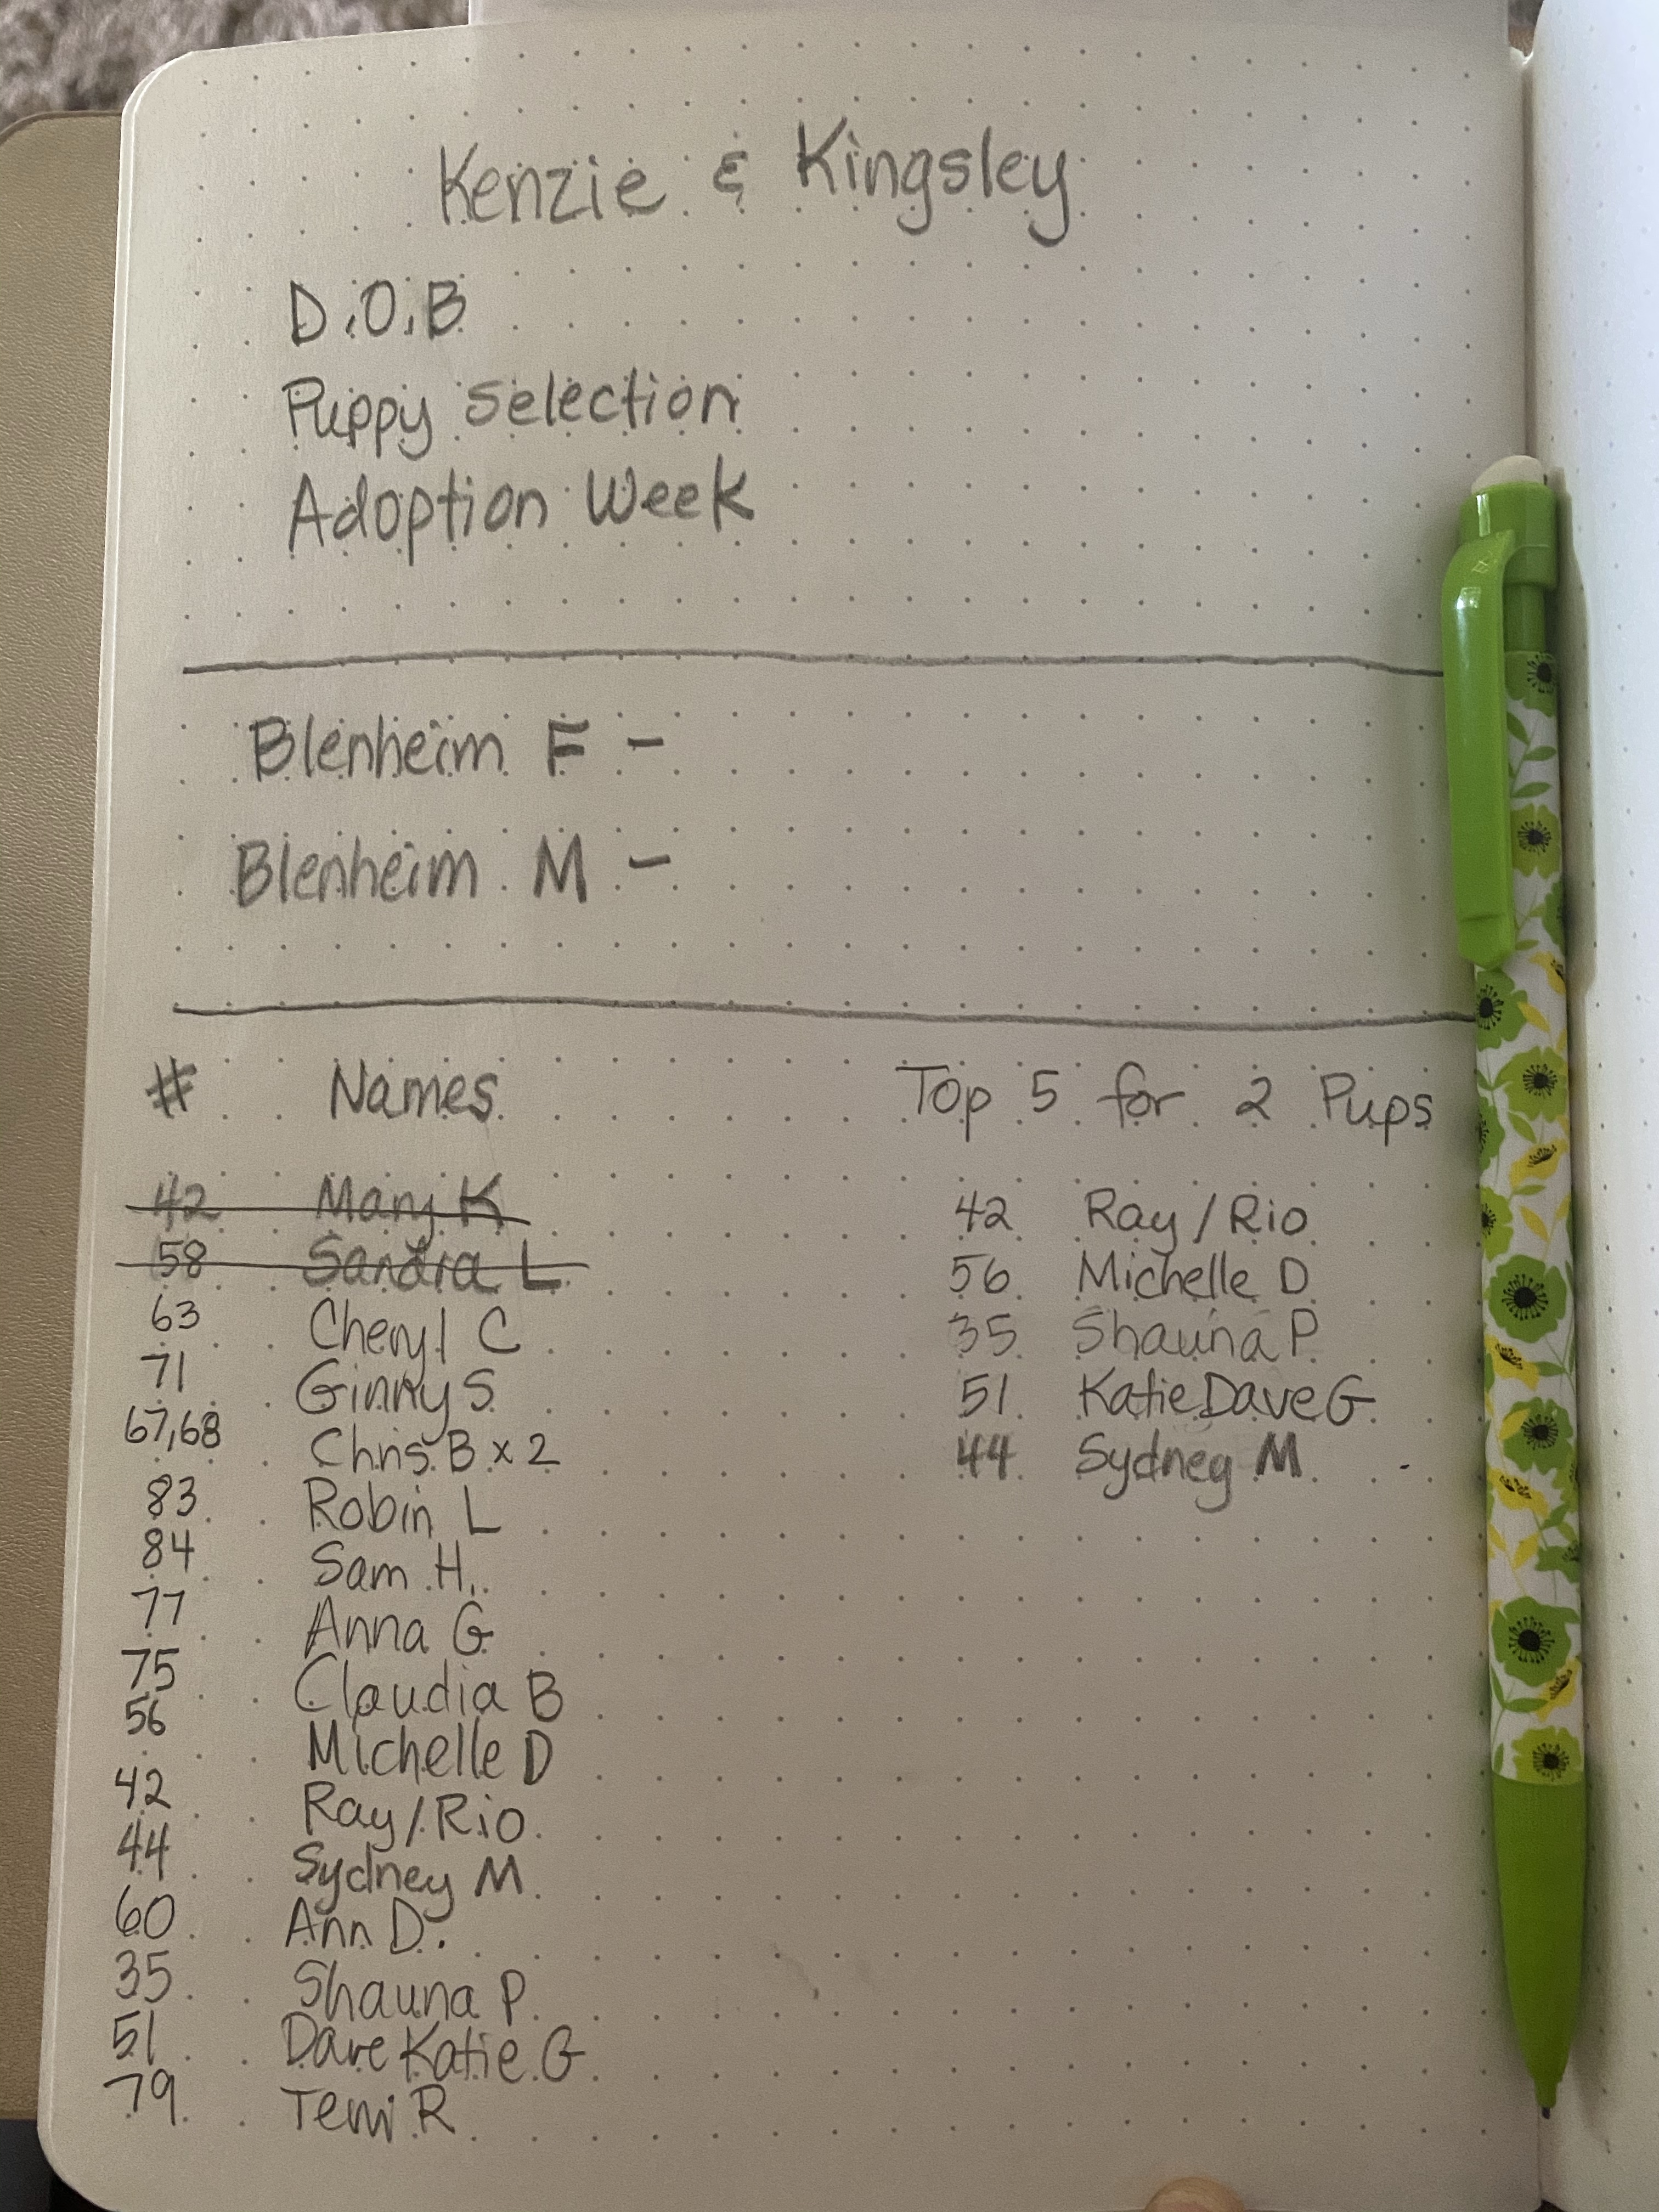 Kenzie & Kingsley
D.O.B
Puppy Selection
Adoption Week
Blenheim F -
Blenheim M -
# Names
42 Mary K
58 Sandra L
63 Cheryl C
71 Ginny S
67,68 Chris B x 2
83 Robin L
84 Sam H.
77 Anna G
75 Claudia B
56 Michelle D
42 Ray/Rio
44 Sydney M
60 Ann D.
35 Shauna P
51 Dave Katie G
79 Terri R
Top 5 for 2 Pups
42 Ray/Rio
56 Michelle D
35 Shauna P
51 Katie Dave G
44 Sydney M